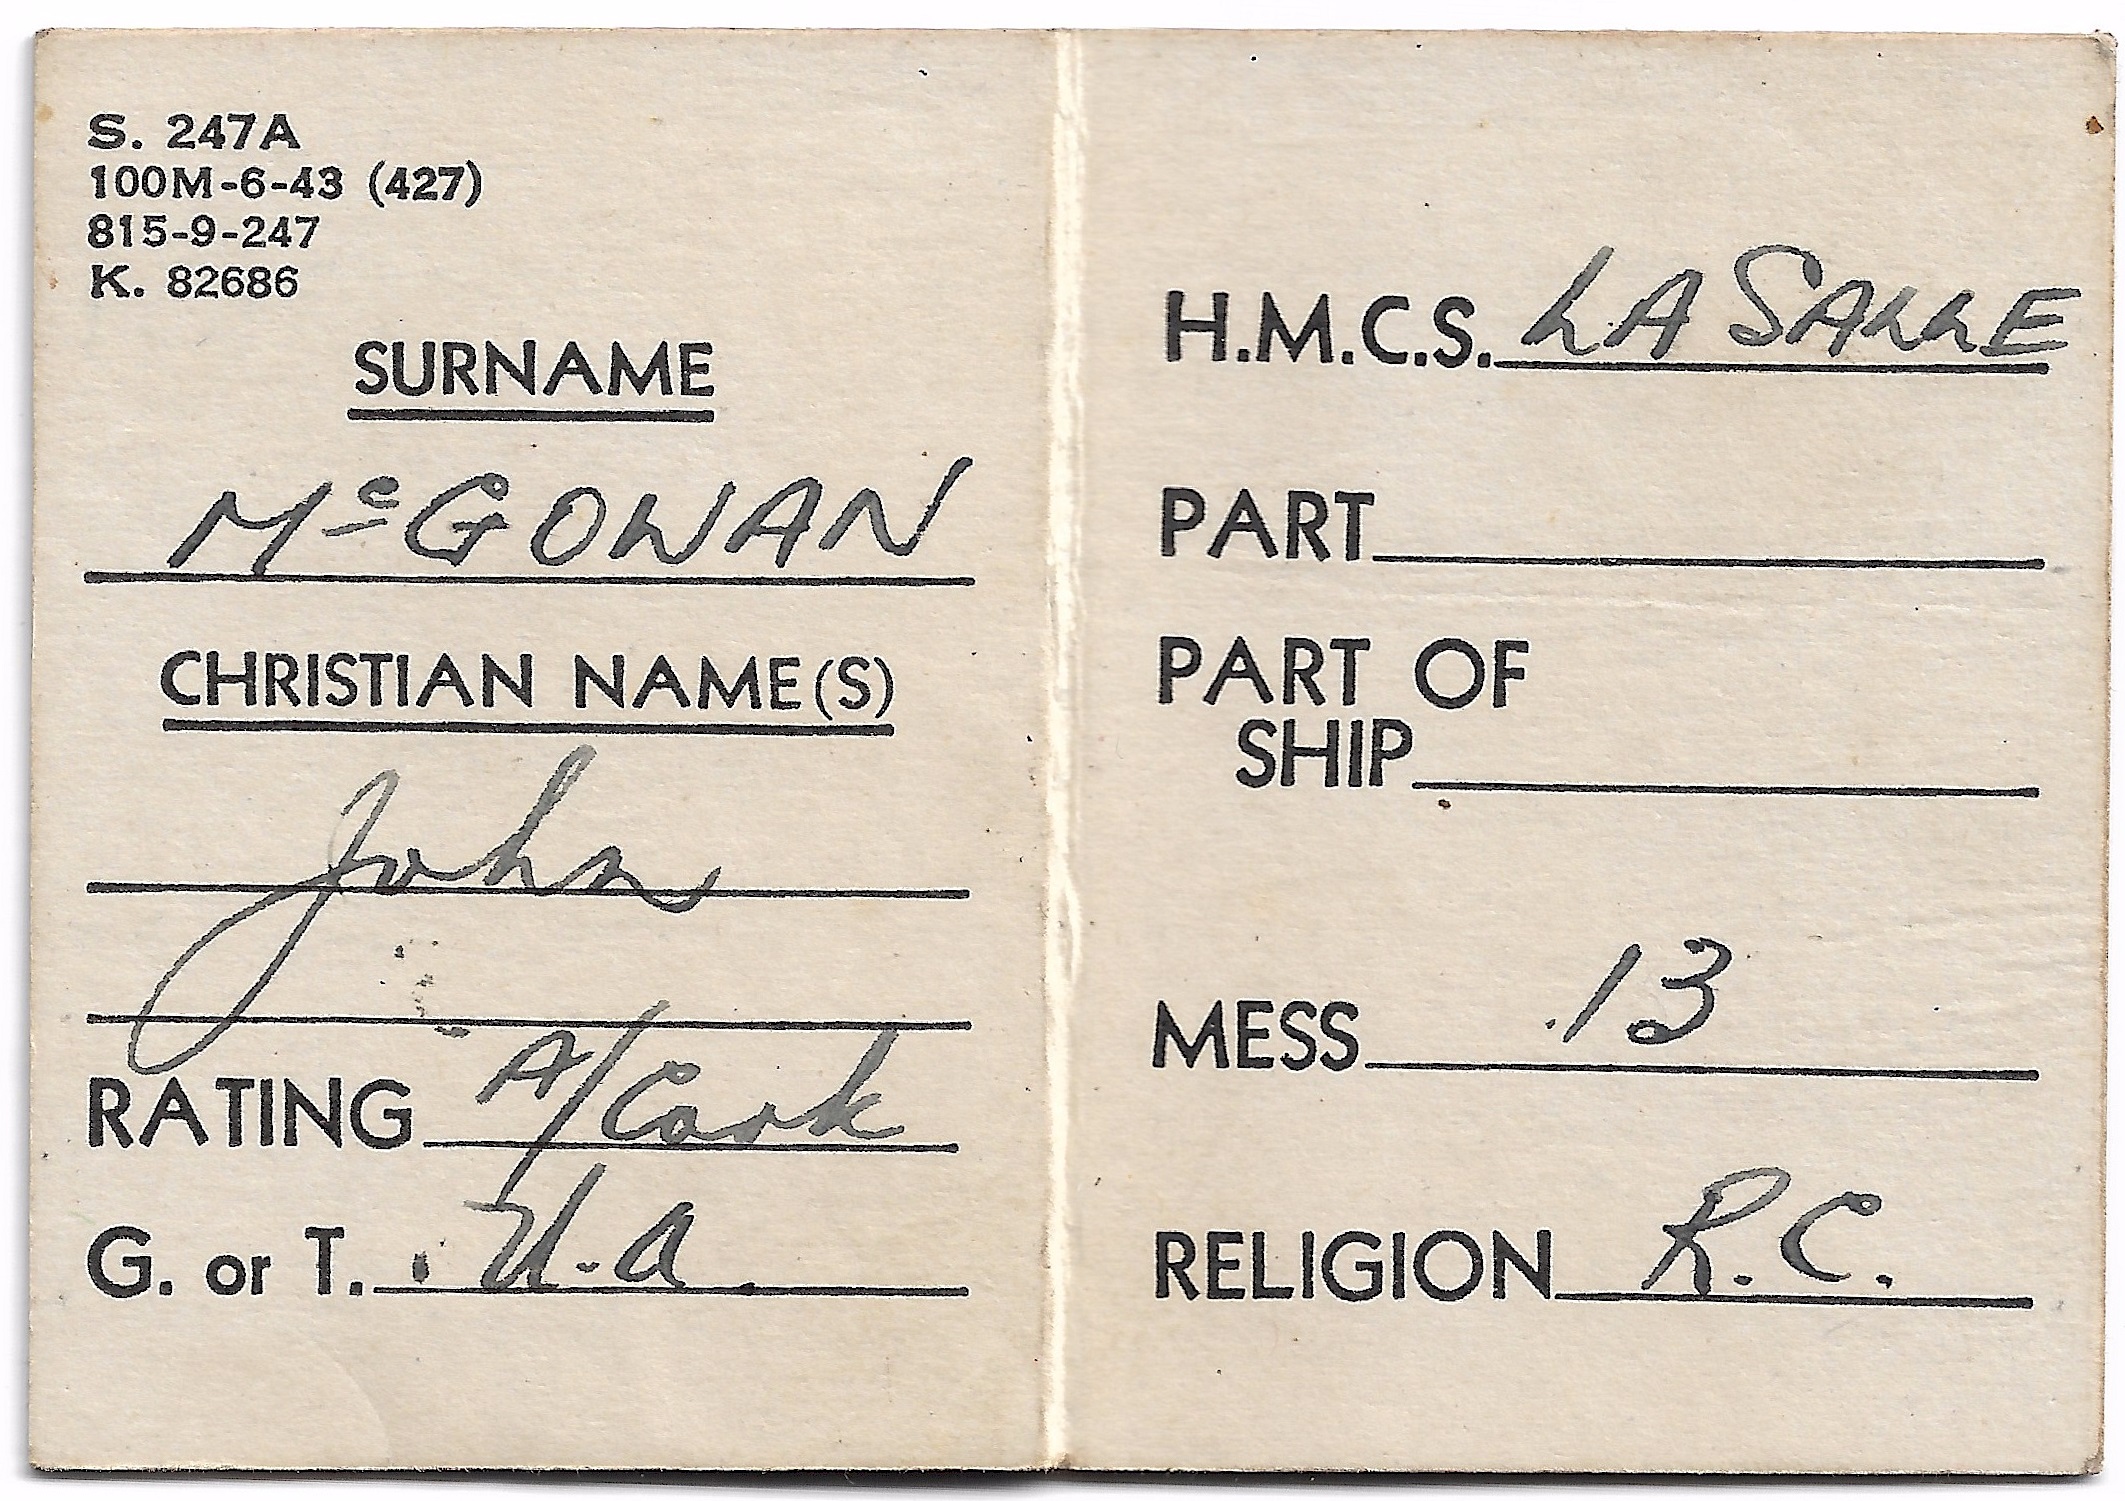 S. 247A
100M-6-43 (427)
815-9-247
K. 82686
SURNAME
McGOWAN
CHRISTIAN NAME(S)
John
RATING A/Cook
G. or T. U.A.
H.M.C.S. LA SALLE
PART
PART OF
SHIP
MESS 13
RELIGION R.C.